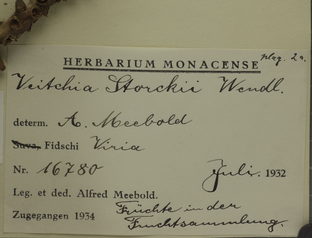 HERBARIUM MONACENSE
Veitchia Storckii Wendl.
determ. A. Meebold
Suva, Fidschi Viria
Nr. 16780 Juli 1932
Leg. et ded. Alfred Meebold.
Zugegangen 1934 Früchte in der
Fruchtsammlung.